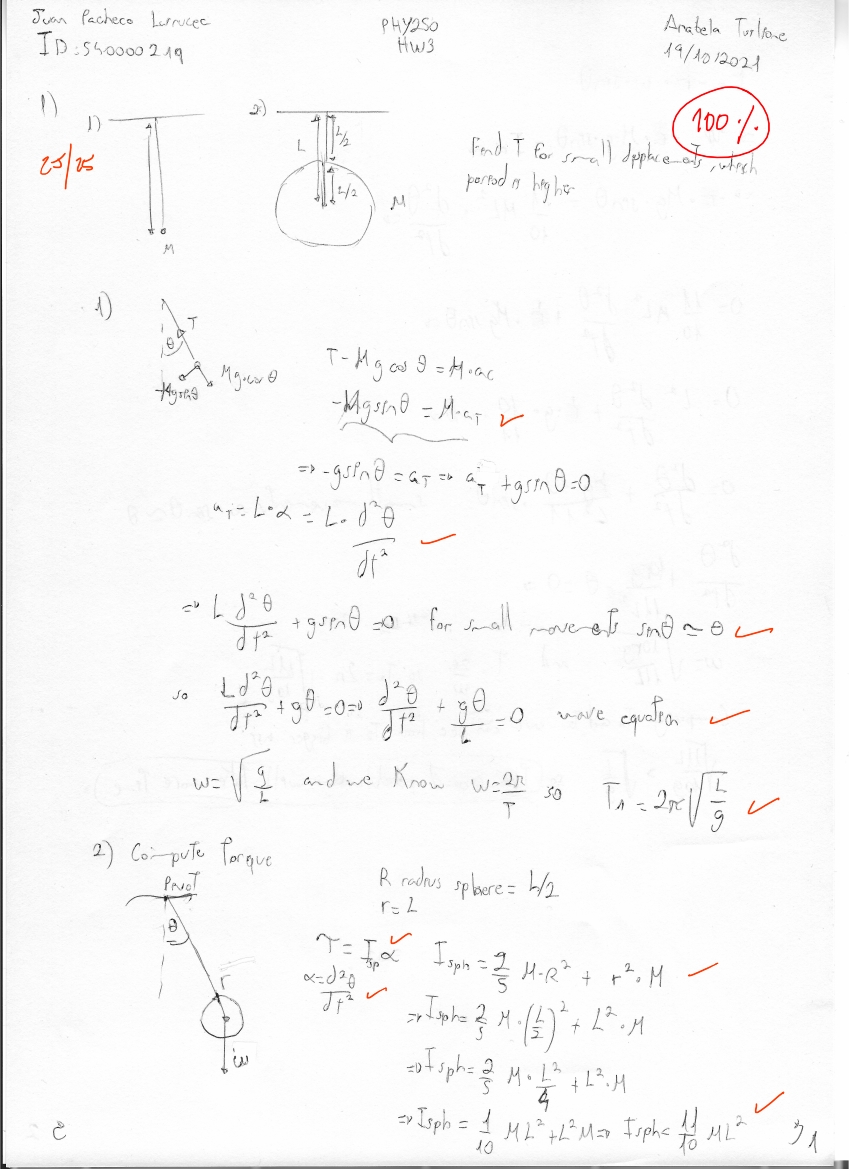 Juan Pacheco Larrucec
PHY250
Anabela Turlione
ID:540000219
HW3
19/10/2021
1)
1)
2)
100%
25/25
L
L/2
L/2
M
M
Find T for small displacements, which
period is higher
1)
T
θ
Mg·cosθ
-Mgsinθ
T - Mg cos θ = M·ac
-Mgsinθ = M·aT
=> -gsinθ = aT => aT + gsinθ = 0
aT = L·α = L· d²θ/dt²
=> L d²θ/dt² + gsinθ = 0 for small movements sinθ ≃ θ
so Ld²θ/dt² + gθ = 0 => d²θ/dt² + gθ/L = 0 wave equation
w = √(g/L) and we know w = 2π/T so T1 = 2π√(L/g)
2) Compute Torque
Pivot
θ
r
w
R radius sphere = L/2
r = L
τ = Isp α
α = d²θ/dt²
Isph = 2/5 M·R² + r²·M
=> Isph = 2/5 M·(L/2)² + L²·M
=> Isph = 2/5 M·L²/4 + L²·M
=> Isph = 1/10 ML² + L²M => Isph = 11/10 ML²